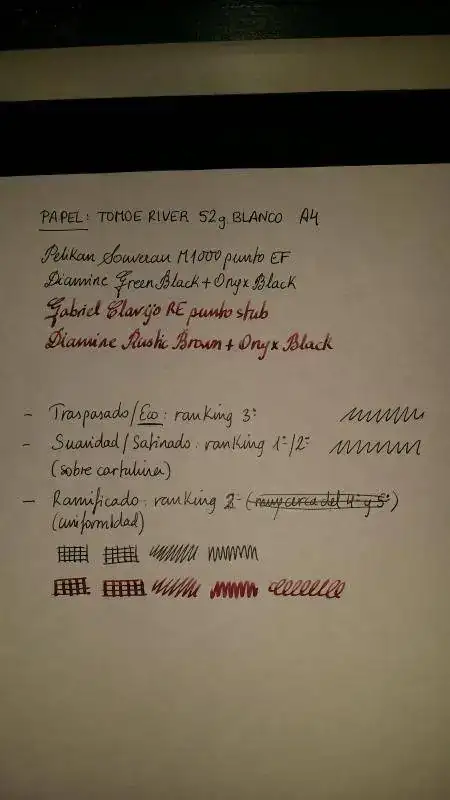 PAPEL: TOMOE RIVER 52g. BLANCO A4
Pelikan Souveran M1000 punto EF
Diamine Green Black + Onyx Black
Gabriel Clavijo RE punto stub
Diamine Rustic Brown + Onyx Black
- Traspasado/Eco: ranking 3º
- Suavidad/Satinado: ranking 1º/2º
(sobre cartulina)
- Ramificado: ranking 2º (muy cerca del 4º y 5º)
(uniformidad)